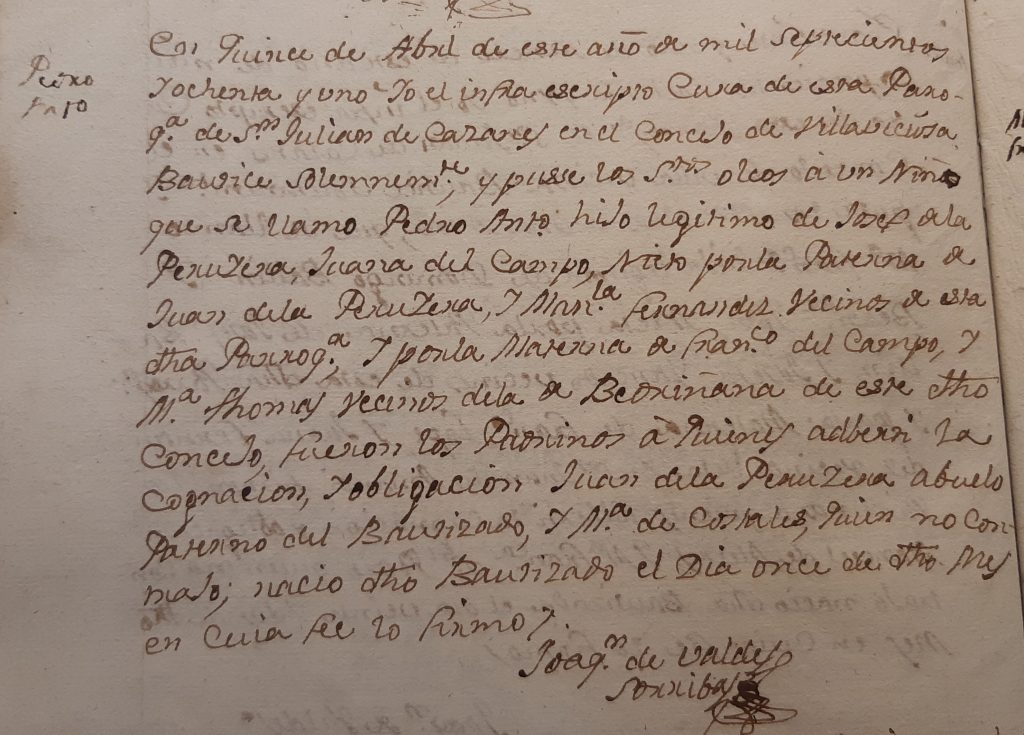 Pedro
Anto
En Quince de Abril de este año de mil septecientos
Yochenta y uno Yo el infra escripto Cura de esta Parro-
qª. de Sn. Julian de Cazanes en el Concejo de Villaviciosa
Bautice solennemte., y pusse los Stos. oleos â un Niño
que se llamo Pedro Anto. hijo legitimo de Josef dela
Peruyera, Juana del Campo, Nieto por la Paterna de
Juan dela Peruyera, Y Manla. Fernandez Vecinos de esta
dha Parroqª., Y por la Materna de Franco. del Campo, Y
Mª. thomas Vecinos dela de Bedriñana de este dho
Concejo, fueron los Padrinos â Quienes adberti la
Cognacion, Yobligacion Juan dela Peruyera abuelo
Paterno del Bautizado, Y Mª. de Costales, Quien no Con-
majo; nacio dho Bautizado el Dia once de dho Mes
en Cuia fee lo firmo Y.
Joaqn. de Valdes
Sorribas